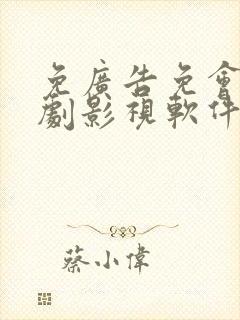 免廣告免會
劇影視軟件
蔡小偉